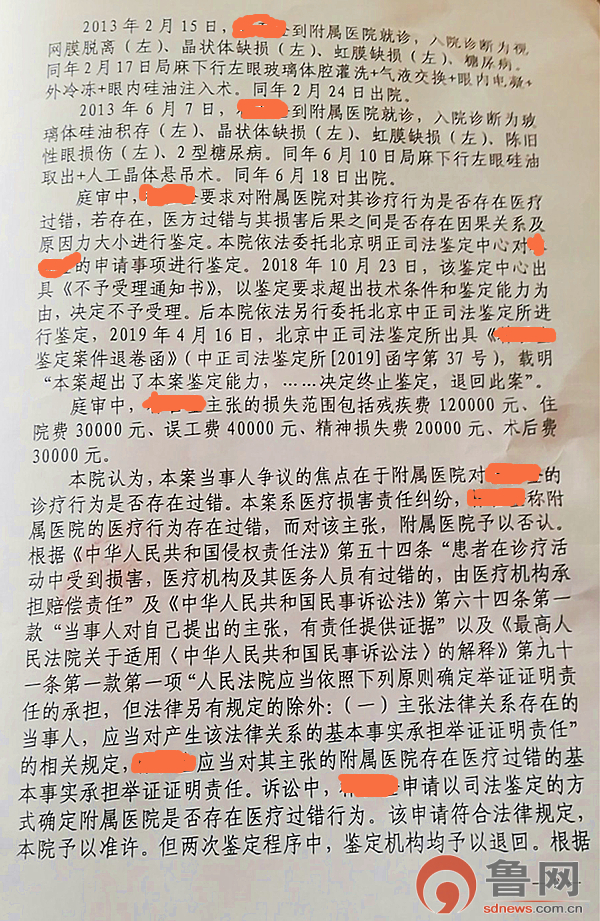 2013年2月15日，到附属医院就诊，入院诊断为视
网膜脱离（左）、晶状体缺损（左）、虹膜缺损（左）、糖尿病。
同年2月17日局麻下行左眼玻璃体腔灌洗+气液交换+眼内电凝+
外冷冻+眼内硅油注入术。同年2月24日出院。
2013年6月7日，到附属医院就诊，入院诊断为玻
璃体硅油积存（左）、晶状体缺损（左）、虹膜缺损（左）、陈旧
性眼损伤（左）、2型糖尿病。同年6月10日局麻下行左眼硅油
取出+人工晶体悬吊术。同年6月18日出院。
庭审中，要求对附属医院对其诊疗行为是否存在医疗
过错，若存在，医方过错与其损害后果之间是否存在因果关系及
原因力大小进行鉴定。本院依法委托北京明正司法鉴定中心对
的申请事项进行鉴定。2018年10月23日，该鉴定中心出
具《不予受理通知书》，以鉴定要求超出技术条件和鉴定能力为
由，决定不予受理。后本院依法另行委托北京中正司法鉴定所进
行鉴定，2019年4月16日，北京中正司法鉴定所出具《
鉴定案件退卷函》（中正司法鉴定所[2019]函字第37号），载明
“本案超出了本案鉴定能力，……决定终止鉴定，退回此案”。
庭审中，主张的损失范围包括残疾费120000元、住
院费30000元、误工费40000元、精神损失费20000元、术后费
30000元。
本院认为，本案当事人争议的焦点在于附属医院对的
诊疗行为是否存在过错。本案系医疗损害责任纠纷，称附
属医院的医疗行为存在过错，而对该主张，附属医院予以否认。
根据《中华人民共和国侵权责任法》第五十四条“患者在诊疗活
动中受到损害，医疗机构及其医务人员有过错的，由医疗机构承
担赔偿责任”及《中华人民共和国民事诉讼法》第六十四条第一
款“当事人对自己提出的主张，有责任提供证据”以及《最高人
民法院关于适用〈中华人民共和国民事诉讼法〉的解释》第九十
一条第一款第一项“人民法院应当依照下列原则确定举证证明责
任的承担，但法律另有规定的除外：（一）主张法律关系存在的
当事人，应当对产生该法律关系的基本事实承担举证证明责任”
的相关规定，应当对其主张的附属医院存在医疗过错的基
本事实承担举证证明责任。诉讼中，申请以司法鉴定的方
式确定附属医院是否存在医疗过错行为。该申请符合法律规定，
本院予以准许。但两次鉴定程序中，鉴定机构均予以退回。根据
鲁网
sdnews.com.cn